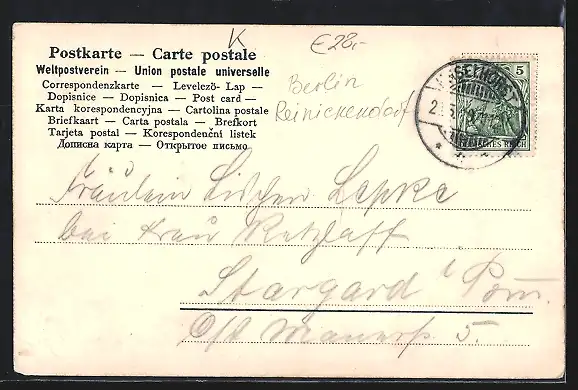 K
€ 28,-
Postkarte — Carte postale
Weltpostverein — Union postale universelle
Correspondenzkarte — Levelező-Lap —
Dopisnice — Dopisnica — Post card —
Karta korespondencyjna — Cartolina postale
Briefkaart — Carta postala — Brefkort
Tarjeta postal — Korespondenční listek
Дописна карта — Открытое письмо
Berlin
Reinickendorf
5
REICH
Fräulein Lischen Lepke
bei Frau Retzlaff
Stargard i Pom.
5.